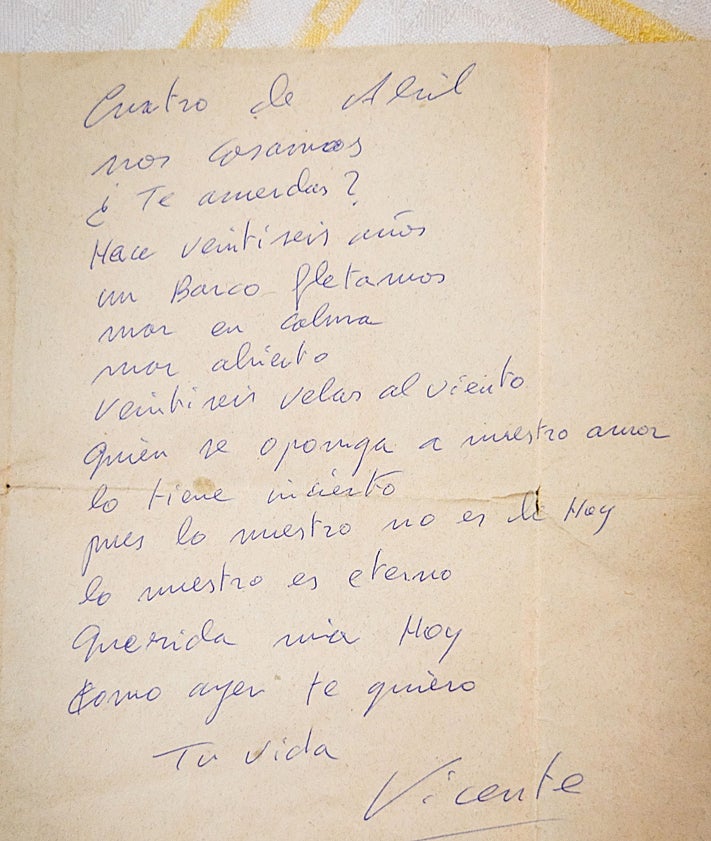 Cuatro de Abril
nos casamos
¿Te acuerdas?
Hace veintiseis años
un Barco fletamos
mar en calma
mar abierto
veintiseis velas al viento
quien se oponga a nuestro amor
lo tiene incierto
pues lo nuestro no es de Hoy
lo nuestro es eterno
Querida mia Hoy
Como ayer te quiero
Tu vida
Vicente